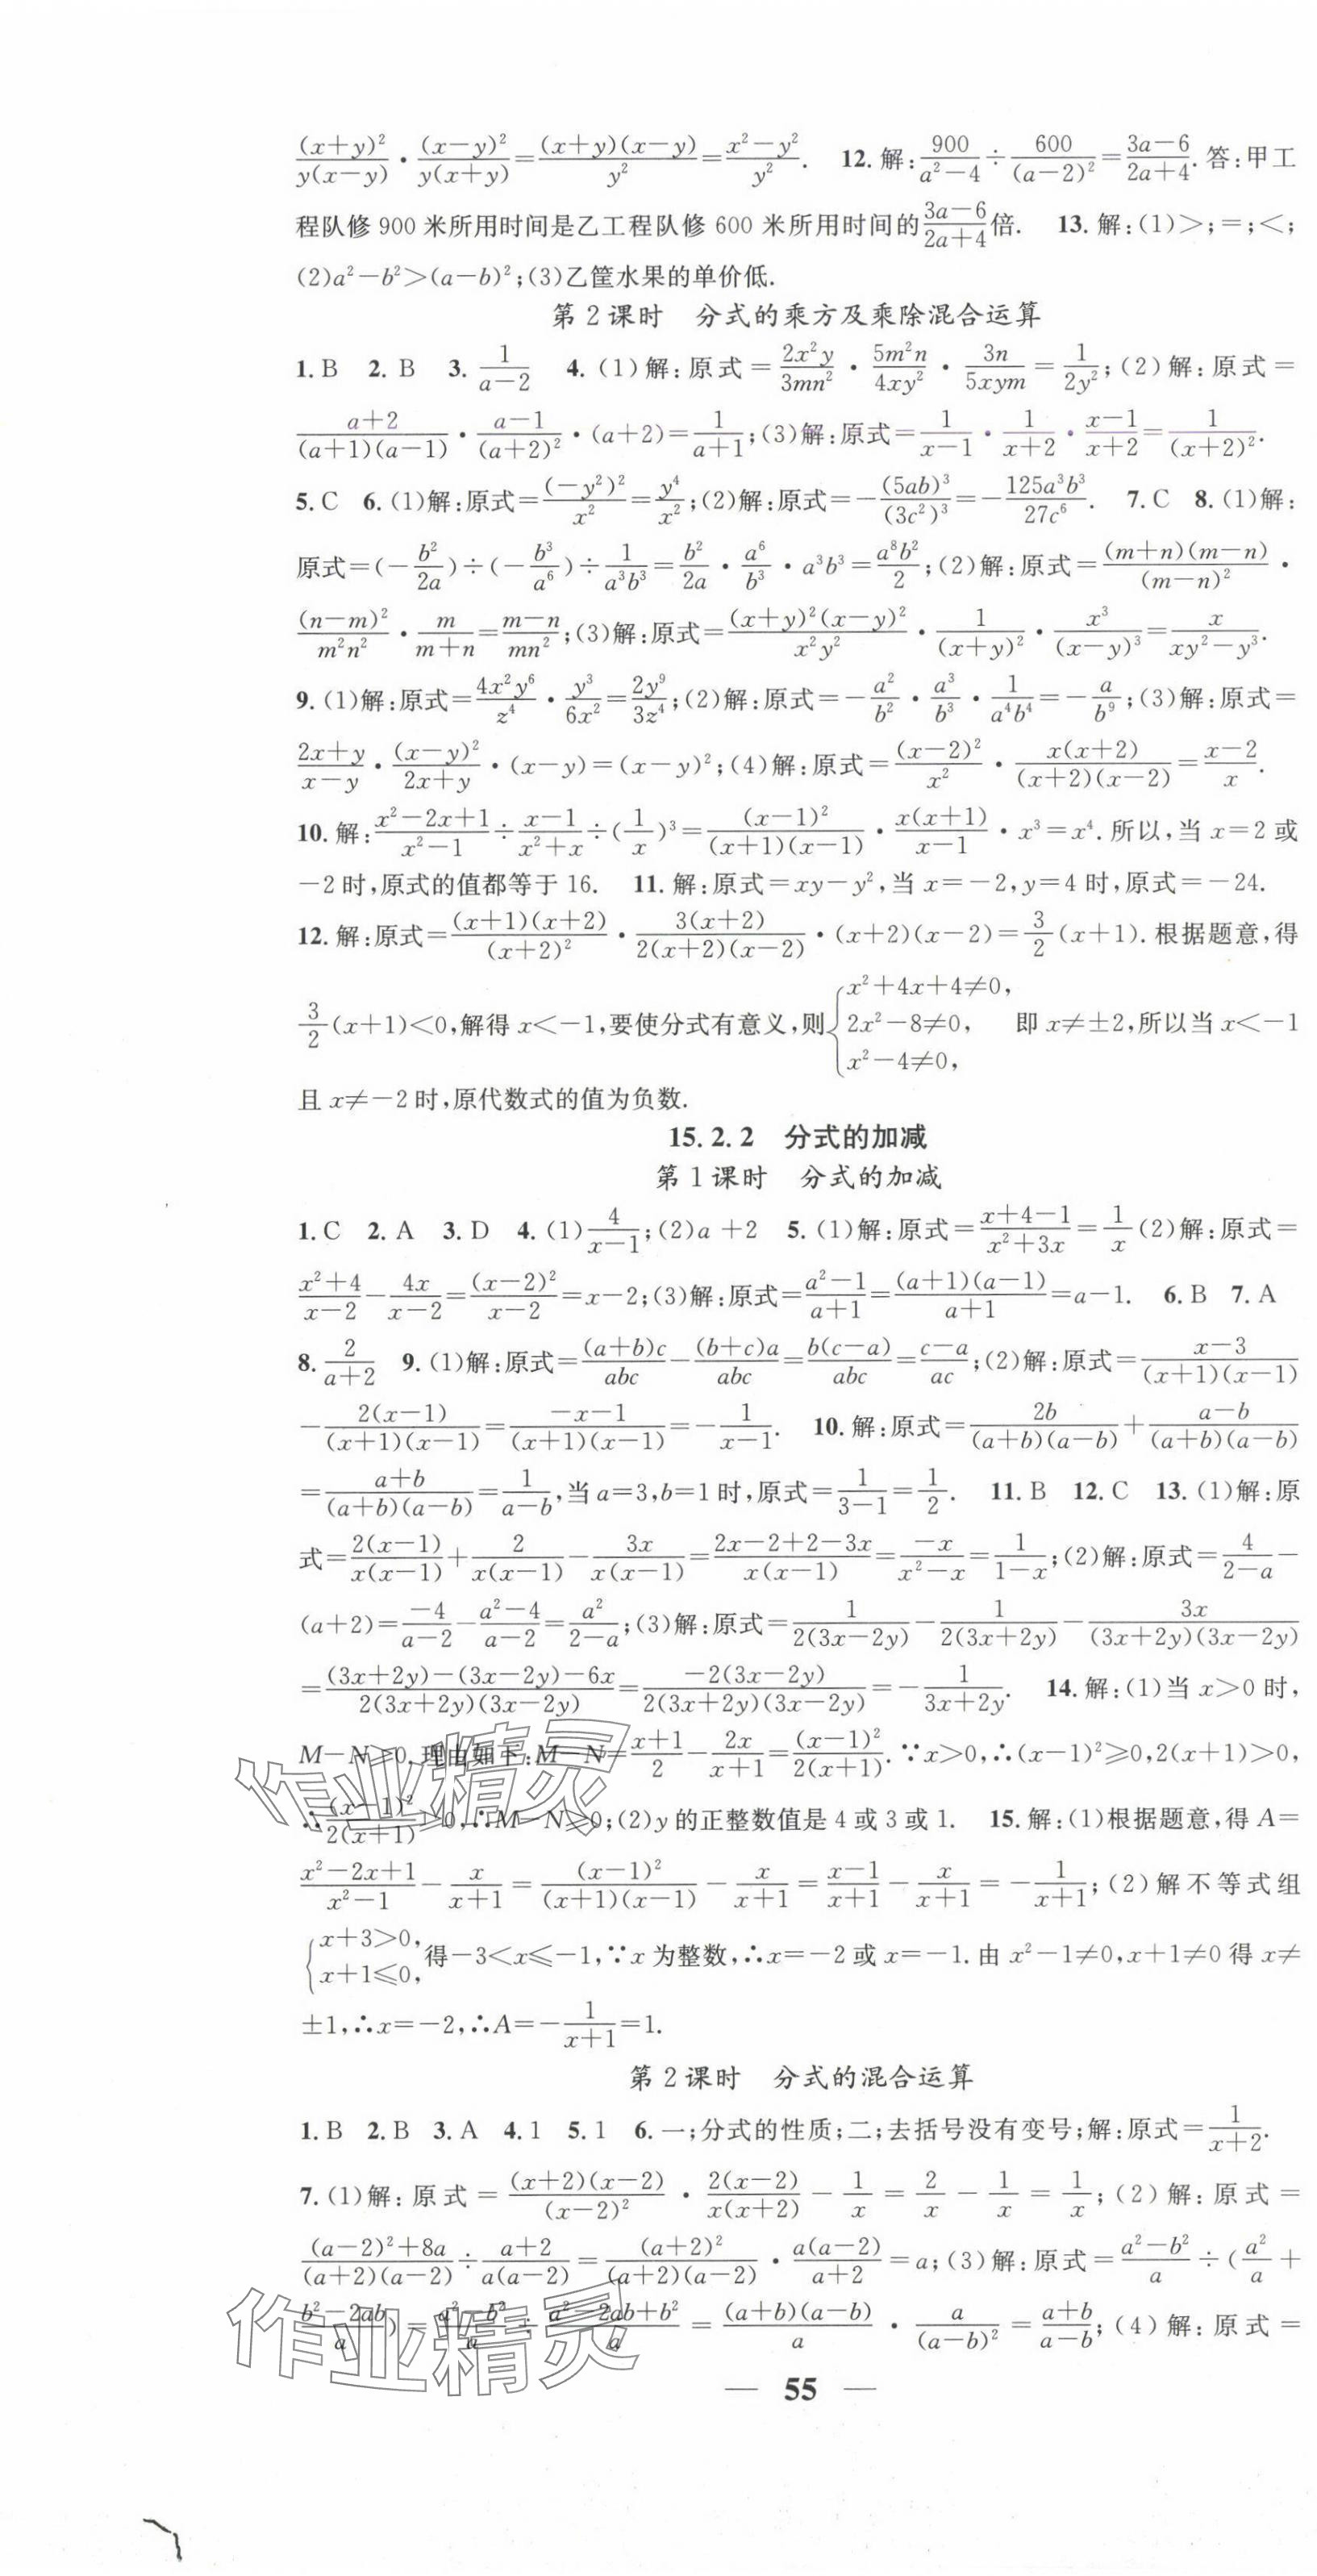 (x+y)²/y(x−y)·(x−y)²/y(x+y)=(x+y)(x−y)/y²=x²−y²/y². 12.解:900/a²−4÷600/(a−2)²=3a−6/2a+4.答:甲工
程队修900米所用时间是乙工程队修600米所用时间的3a−6/2a+4倍. 13.解:(1)>;=;<;
(2)a²−b²>(a−b)²;(3)乙筐水果的单价低.
第2课时 分式的乘方及乘除混合运算
1.B 2.B 3. 1/a−2 4.(1)解:原式=2x²y/3mn²·5m²n/4xy²·3n/5xym=1/2y²;(2)解:原式=
a+2/(a+1)(a−1)·a−1/(a+2)²·(a+2)=1/a+1;(3)解:原式=1/x−1·1/x+2·x−1/x+2=1/(x+2)².
5.C 6.(1)解:原式=(−y²)²/x²=y⁴/x²;(2)解:原式=−(5ab)³/(3c²)³=−125a³b³/27c⁶. 7.C 8.(1)解:
原式=(−b²/2a)÷(−b³/a⁶)÷1/a³b³=b²/2a·a⁶/b³·a³b³=a⁸b²/2;(2)解:原式=(m+n)(m−n)/(m−n)²·
(n−m)²/m²n²·m/m+n=m−n/mn²;(3)解:原式=(x+y)²(x−y)²/x²y²·1/(x+y)²·x³/(x−y)³=x/xy²−y³.
9.(1)解:原式=4x²y⁶/z⁴·y³/6x²=2y⁹/3z⁴;(2)解:原式=−a²/b²·a³/b³·1/a⁴b⁴=−a/b⁹;(3)解:原式=
2x+y/x−y·(x−y)²/2x+y·(x−y)=(x−y)²;(4)解:原式=(x−2)²/x²·x(x+2)/(x+2)(x−2)=x−2/x.
10.解:x²−2x+1/x²−1÷x−1/x²+x÷(1/x)³=(x−1)²/(x+1)(x−1)·x(x+1)/x−1·x³=x⁴.所以,当x=2或
−2时,原式的值都等于16. 11.解:原式=xy−y²,当x=−2,y=4时,原式=−24.
12.解:原式=(x+1)(x+2)/(x+2)²·3(x+2)/2(x+2)(x−2)·(x+2)(x−2)=3/2(x+1).根据题意,得
3/2(x+1)<0,解得x<−1,要使分式有意义,则{x²+4x+4≠0, 2x²−8≠0, x²−4≠0, 即x≠±2,所以当x<−1
且x≠−2时,原代数式的值为负数.
15.2.2 分式的加减
第1课时 分式的加减
1.C 2.A 3.D 4.(1)4/x−1;(2)a+2 5.(1)解:原式=x+4−1/x²+3x=1/x(2)解:原式=
x²+4/x−2−4x/x−2=(x−2)²/x−2=x−2;(3)解:原式=a²−1/a+1=(a+1)(a−1)/a+1=a−1. 6.B 7.A
8. 2/a+2 9.(1)解:原式=(a+b)c/abc−(b+c)a/abc=b(c−a)/abc=c−a/ac;(2)解:原式=x−3/(x+1)(x−1)
−2(x−1)/(x+1)(x−1)=−x−1/(x+1)(x−1)=−1/x−1. 10.解:原式=2b/(a+b)(a−b)+a−b/(a+b)(a−b)
=a+b/(a+b)(a−b)=1/a−b,当a=3,b=1时,原式=1/3−1=1/2. 11.B 12.C 13.(1)解:原
式=2(x−1)/x(x−1)+2/x(x−1)−3x/x(x−1)=2x−2+2−3x/x(x−1)=−x/x²−x=1/1−x;(2)解:原式=4/2−a−
(a+2)=−4/a−2−a²−4/a−2=a²/2−a;(3)解:原式=1/2(3x−2y)−1/2(3x+2y)−3x/(3x+2y)(3x−2y)
=(3x+2y)−(3x−2y)−6x/2(3x+2y)(3x−2y)=−2(3x−2y)/2(3x+2y)(3x−2y)=−1/3x+2y. 14.解:(1)当x>0时,
M−N≥0.理由如下:M−N=x+1/2−2x/x+1=(x−1)²/2(x+1).∵x>0,∴(x−1)²≥0,2(x+1)>0,
∴(x−1)²/2(x+1)≥0,∴M−N≥0;(2)y的正整数值是4或3或1. 15.解:(1)根据题意,得A=
x²−2x+1/x²−1−x/x+1=(x−1)²/(x+1)(x−1)−x/x+1=x−1/x+1−x/x+1=−1/x+1;(2)解不等式组
{x+3>0, x+1≤0, 得−3<x≤−1,∵x为整数,∴x=−2或x=−1.由x²−1≠0,x+1≠0得x≠
±1,∴x=−2,∴A=−1/x+1=1.
第2课时 分式的混合运算
1.B 2.B 3.A 4.1 5.1 6.一;分式的性质;二;去括号没有变号;解:原式=1/x+2.
7.(1)解:原式=(x+2)(x−2)/(x−2)²·2(x−2)/x(x+2)−1/x=2/x−1/x=1/x;(2)解:原式=
(a−2)²+8a/(a+2)(a−2)÷a+2/a(a−2)=(a+2)²/(a+2)(a−2)·a(a−2)/a+2=a;(3)解:原式=a²−b²/a÷(a²/a+
b²−2ab/a)=a²−b²/a÷a²−2ab+b²/a=(a+b)(a−b)/a·a/(a−b)²=a+b/a−b;(4)解:原式=
— 55 —
作业精灵
作业精灵